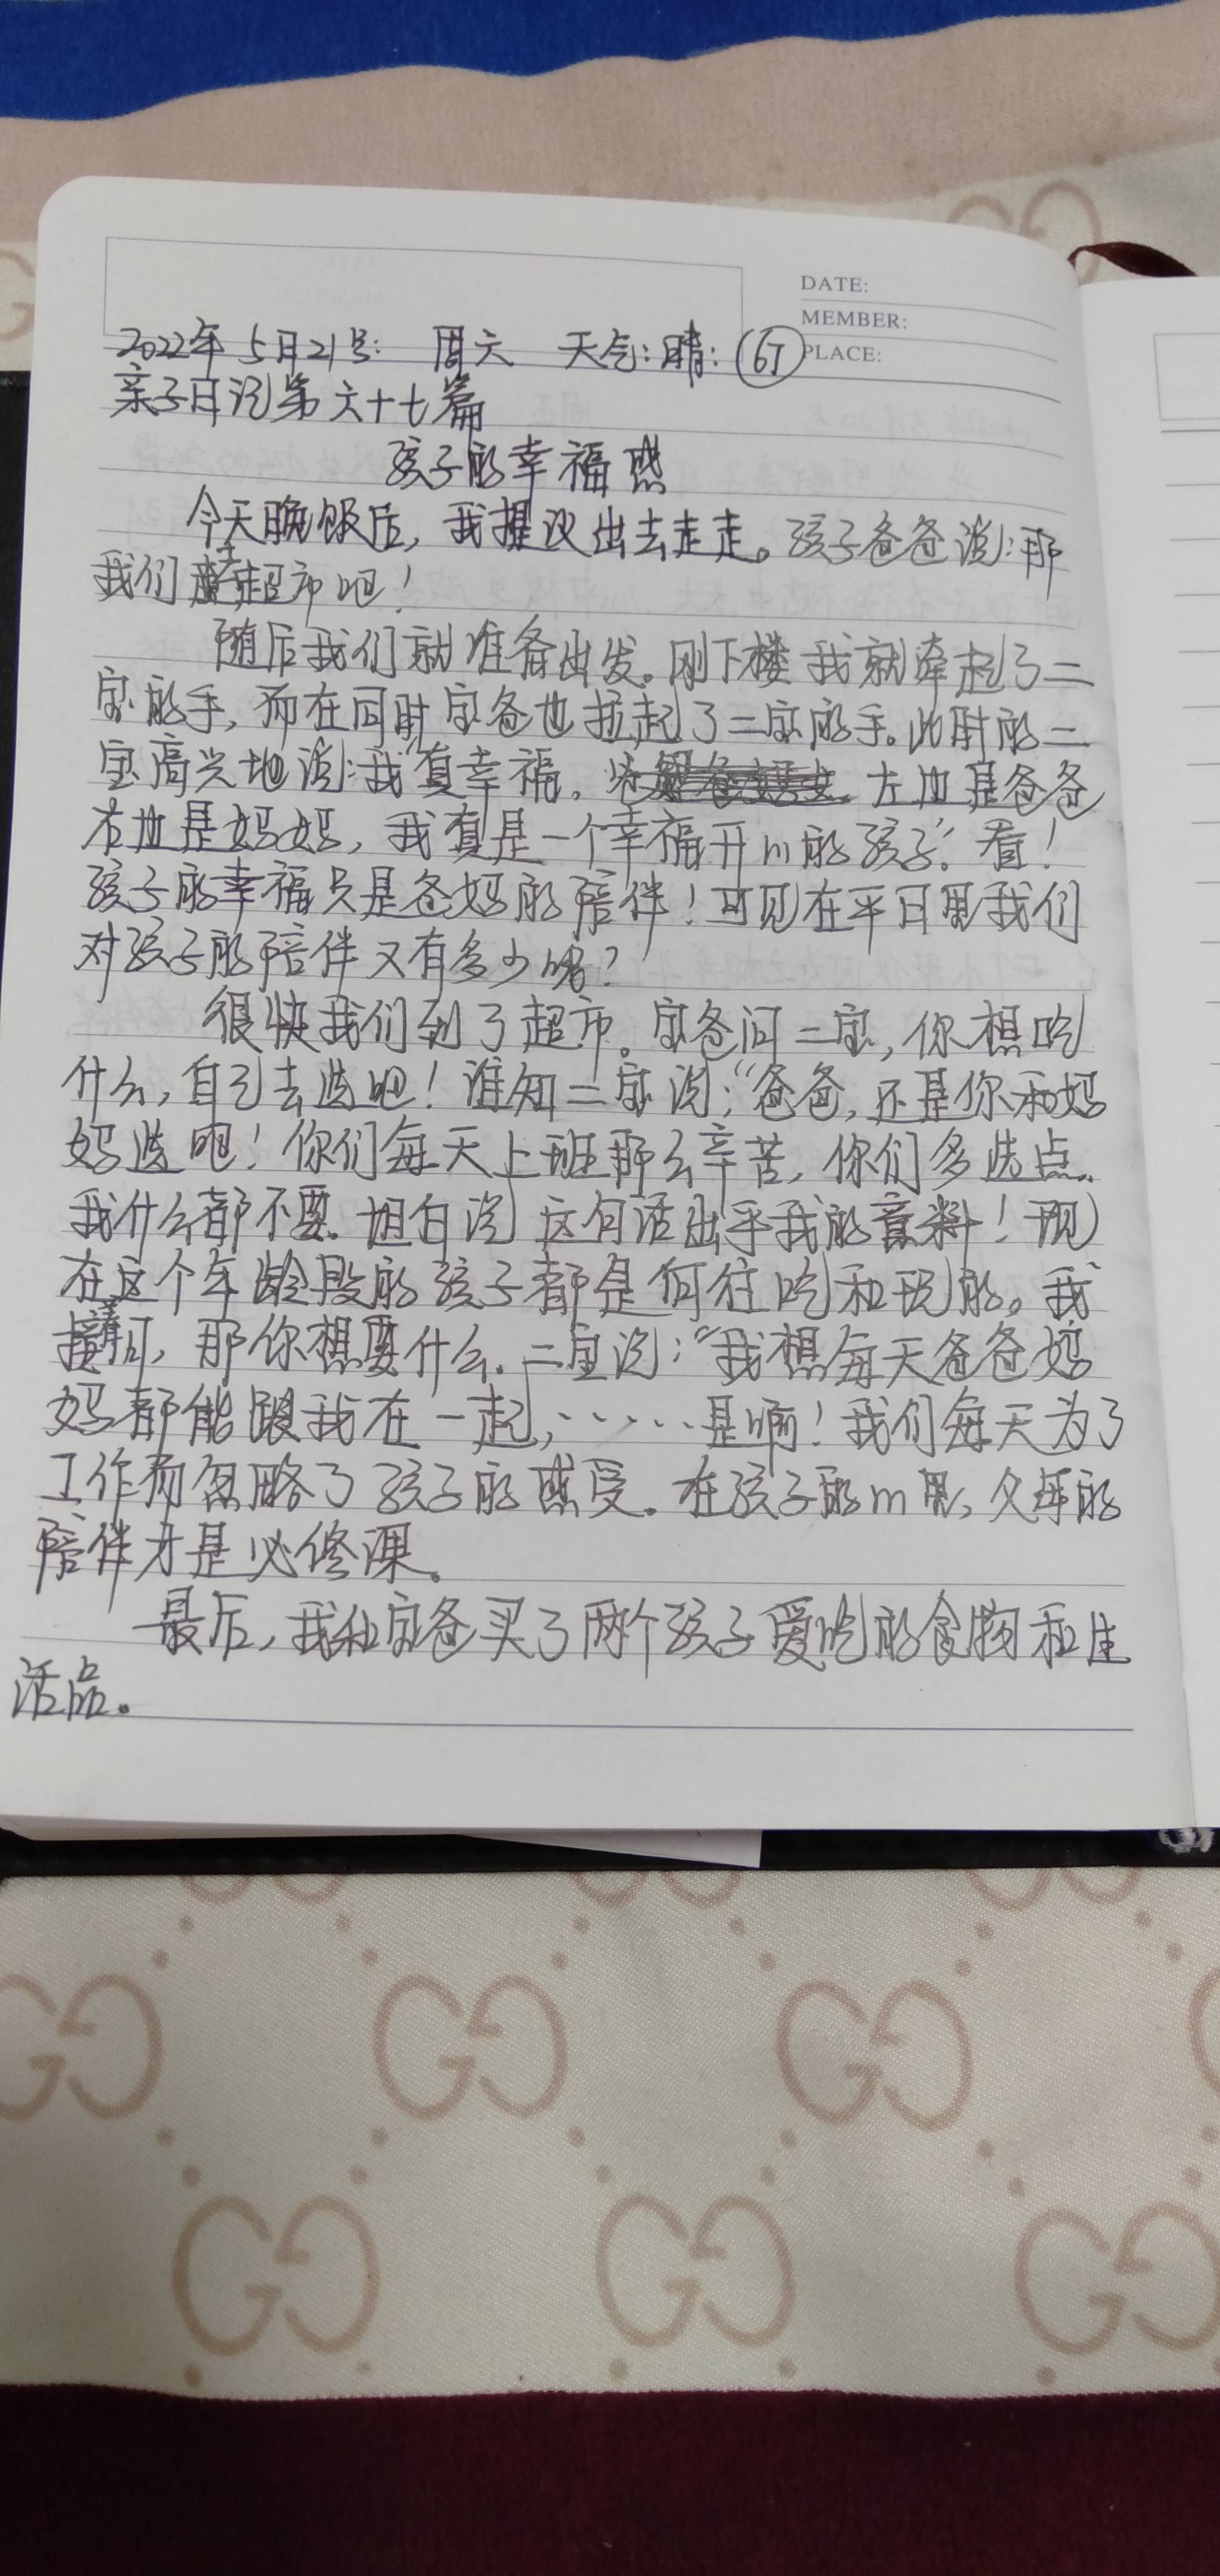 DATE:
MEMBER:
PLACE:
2022年5月21号: 周六 天气:晴: 67
亲子日记第六十七篇
孩子的幸福感
今天晚饭后,我提议出去走走。孩子爸爸说:那
我们去超市吧!
随后我们就准备出发。刚下楼我就牵起了二
宝的手,而在同时宝爸也拉起了二宝的手。此时的二
宝高兴地说:我“真幸福。左边是爸爸
右边是妈妈,我真是一个幸福开心的孩子”。看!
孩子的幸福只是爸妈的陪伴!可见在平日里我们
对孩子的陪伴又有多少呢?
很快我们到了超市。宝爸问二宝,你想吃
什么,自己去选吧!谁知二宝说:“爸爸,还是你和妈
妈选吧!你们每天上班那么辛苦,你们多选点.
我什么都不要.坦白说这句话出乎我的意料!现
在这个年龄段的孩子都是向往吃和玩的。我
接着问,那你想要什么.二宝说:“我想每天爸爸妈
妈都能跟我在一起,……是啊!我们每天为了
工作而忽略了孩子的感受.在孩子的心里,父母的
陪伴才是必修课。
最后,我和宝爸买了两个孩子爱吃的食物和生
活品。